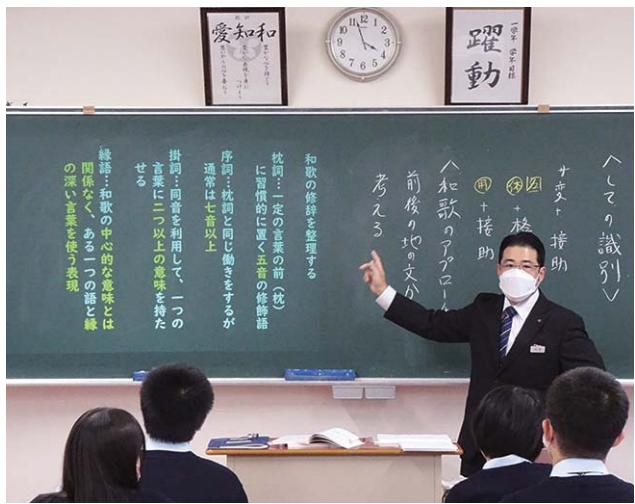 校訓
愛知和
躍動
一学年 学年目標
〈しての識別〉
サ変+接助
体+格
用+接助
〈和歌のアプロー
前後の地の文か
考える
和歌の修辞を整理する
枕詞…一定の言葉の前（枕）
に習慣的に置く五音の修飾語
序詞…枕詞と同じ働きをするが
通常は七音以上
掛詞…同音を利用して、一つの
言葉に二つ以上の意味を持た
せる
縁語…和歌の中心的な意味とは
関係なく、ある一つの語と縁
の深い言葉を使う表現